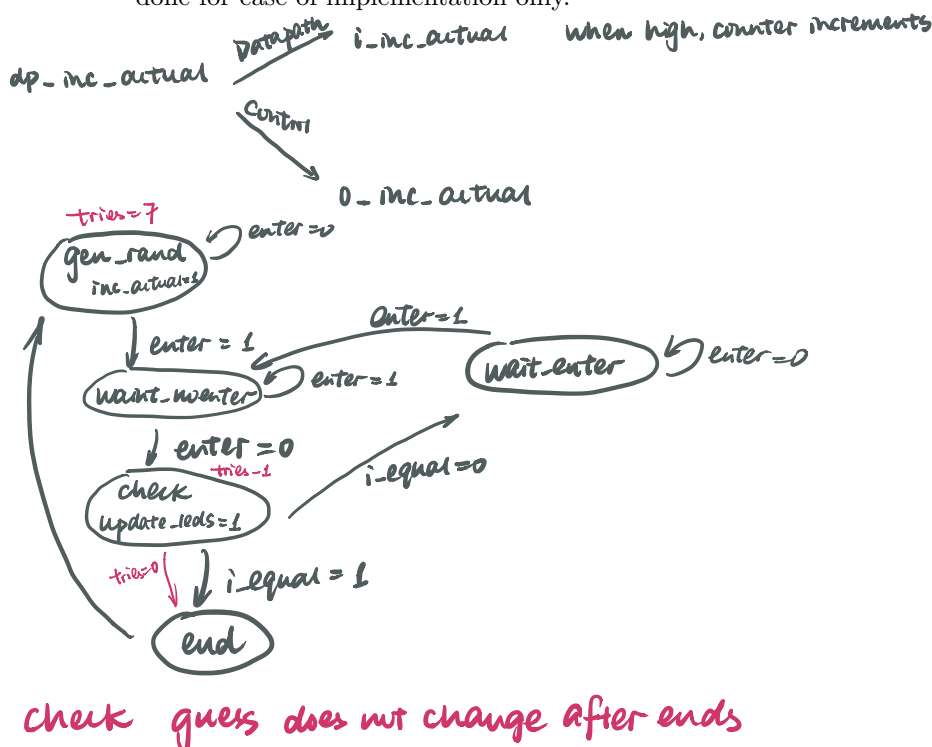 done for ease of implementation only.
dp_inc_actual
Datapath
i_inc_actual when high, counter increments
control
o_inc_actual
tries=7
gen_rand
inc_actual=1
enter=0
enter = 1
enter=1
waint_noenter
enter=1
wait_enter
enter=0
enter =0
tries-1
check
update_leds=1
i_equal=0
tries=0
i_equal = 1
end
check guess does not change after ends